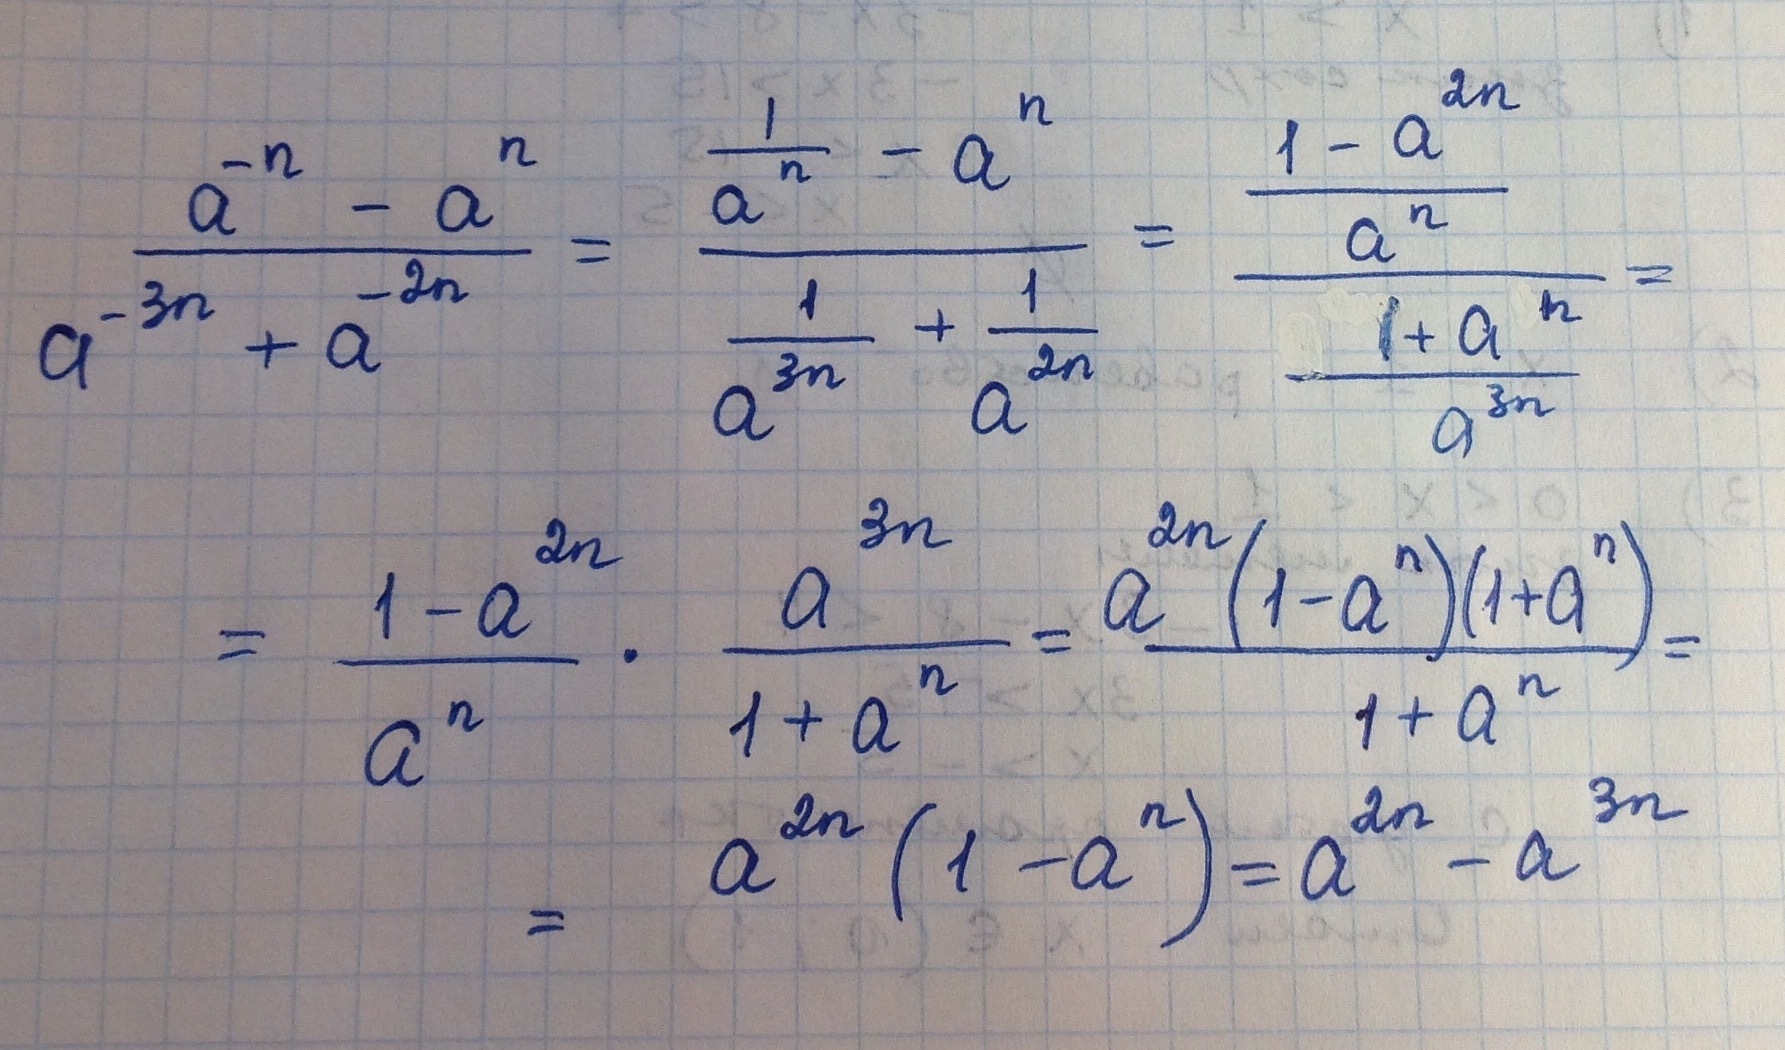 \frac{a^{-n} - a^{n}}{a^{-3n} + a^{-2n}} = \frac{\frac{1}{a^{n}} - a^{n}}{\frac{1}{a^{3n}} + \frac{1}{a^{2n}}} = \frac{\frac{1 - a^{2n}}{a^{n}}}{\frac{1 + a^{n}}{a^{3n}}} =
= \frac{1 - a^{2n}}{a^{n}} \cdot \frac{a^{3n}}{1 + a^{n}} = \frac{a^{2n}(1 - a^{n})(1 + a^{n})}{1 + a^{n}} =
= a^{2n}(1 - a^{n}) = a^{2n} - a^{3n}